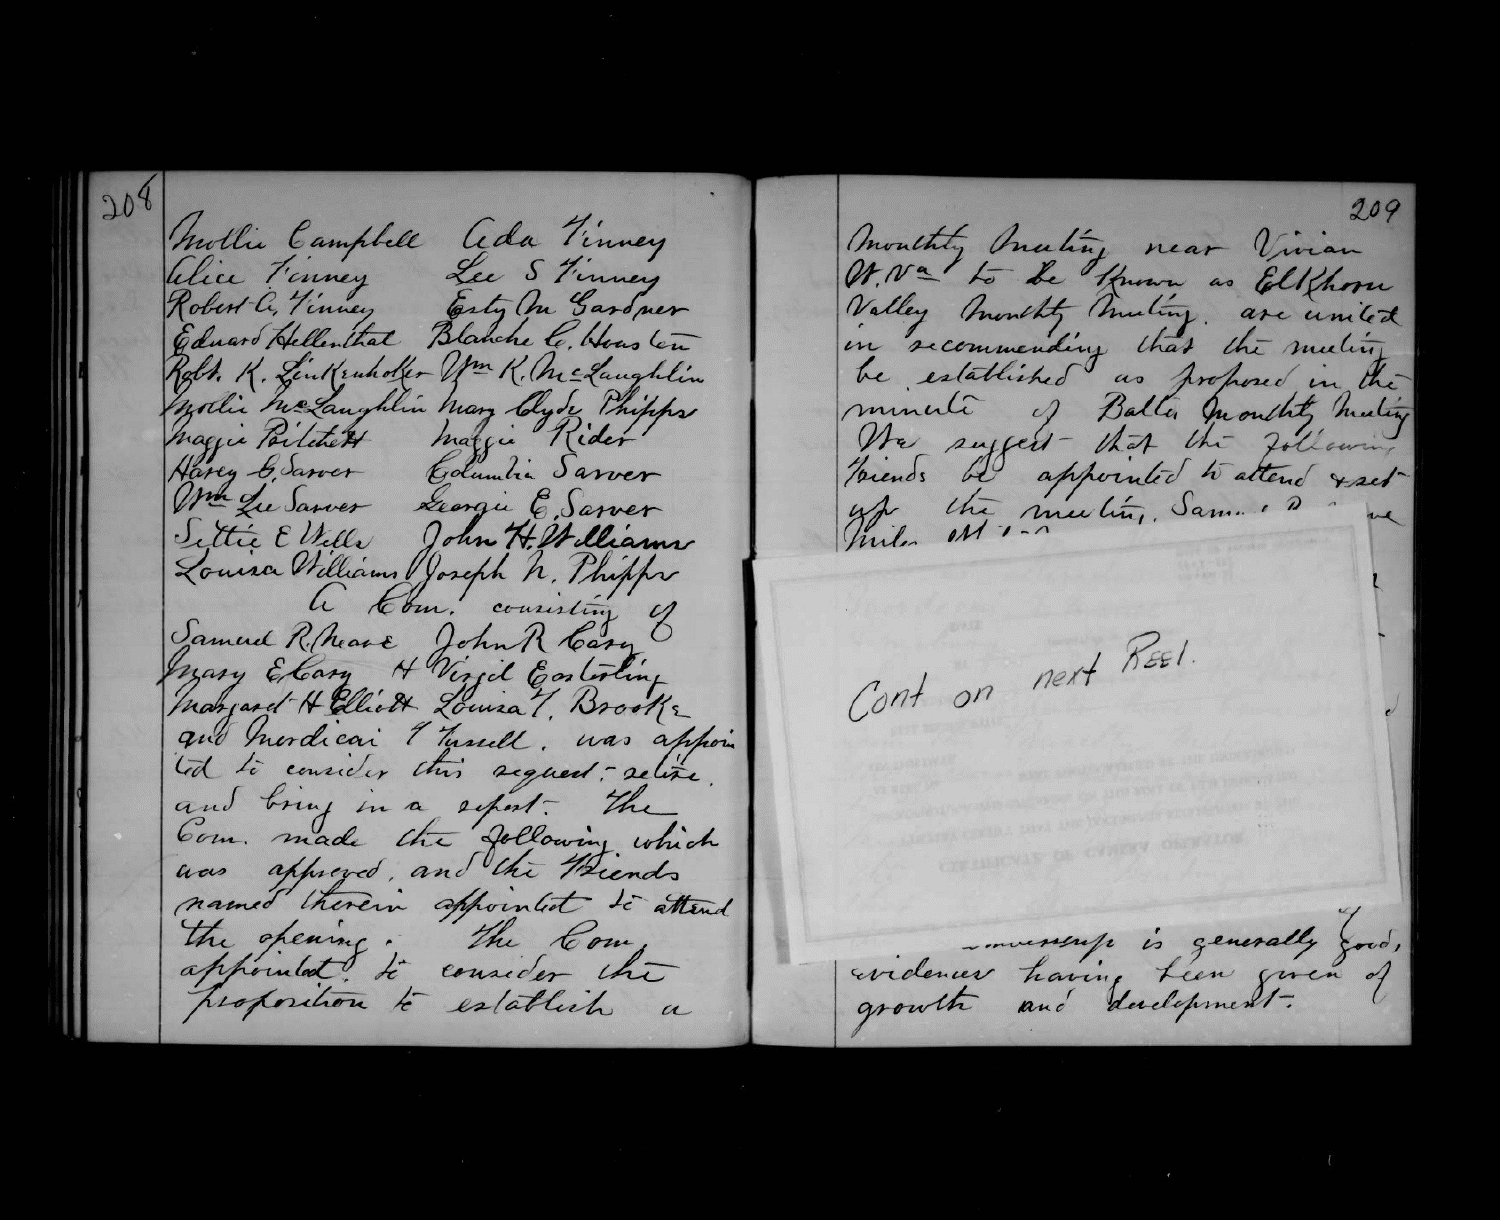 208
Mollie Campbell Ada Finney
Alice Finney Lee S Finney
Robert A. Finney Esty M Gardner
Edward Hellenthal Blanche C. Houston
Robt. K. Linkenhoker Wm K. McLaughlin
Mollie McLaughlin Mary Clyde Phipps
Maggie Pritchett Maggie Rider
Harry C. Sarver Columbia Sarver
Wm Lee Sarver Georgie E. Sarver
Settie E Wells John H. Williams
Louisa Williams Joseph N. Phipps
A Com. consisting of
Samuel R. Neave John R Cary
Mary E Cary H Virgil Easterling
Margaret H Elliott Louisa F. Brooke
and Mordicai T Fussell. was appoin
ted to consider this request- retire.
and bring in a report- The
Com. made the following which
was approved. and the Friends
named therein appointed to attend
the opening. The Com.
appointed to consider the
proposition to establish a
209
Monthly Meeting near Vivian
W. Va to be known as Elkhorn
Valley Monthly Meeting. are united
in recommending that the meeting
be established as proposed in the
minute of Balto Monthly Meeting
We suggest- that the following
Friends be appointed to attend & set
up the meeting.
Cont on next Reel.
is generally good,
evidences having been given of
growth and development-.